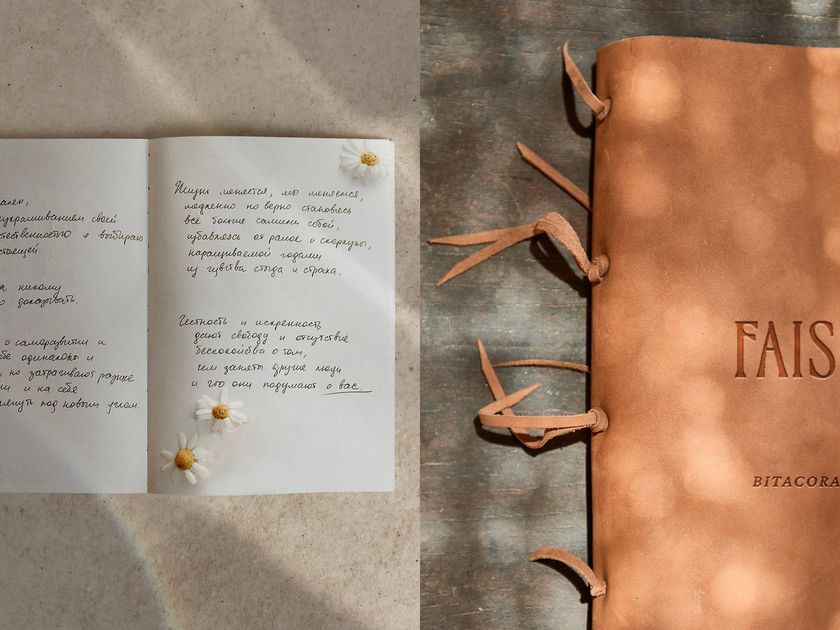 ален,
украшиванием своей
тественностью я выбираю
стоящей.
а никому
о доказывать.
о саморазвитии и
бе и
но затрагивают разные
и на себе
лянуть под новым углом.
Жизнь меняется, мы меняемся,
медленно но верно становясь
всё больше самими собой,
избавляясь от рамок и скорлупы,
наращиваемой годами
из чувства стыда и страха.
Честность и искренность
дают свободу и отсутствие
беспокойства о том,
чем заняты другие люди
и что они подумают о вас
FAIS
BITACORA